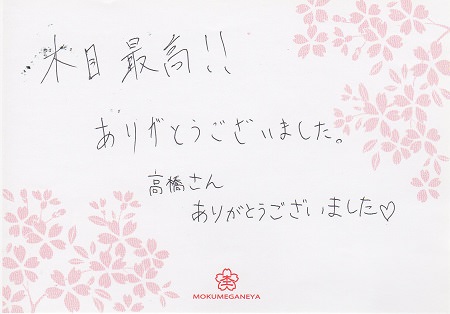 木目最高!!
ありがとうございました。
高橋さん
ありがとうございました♡
MOKUMEGANEYA